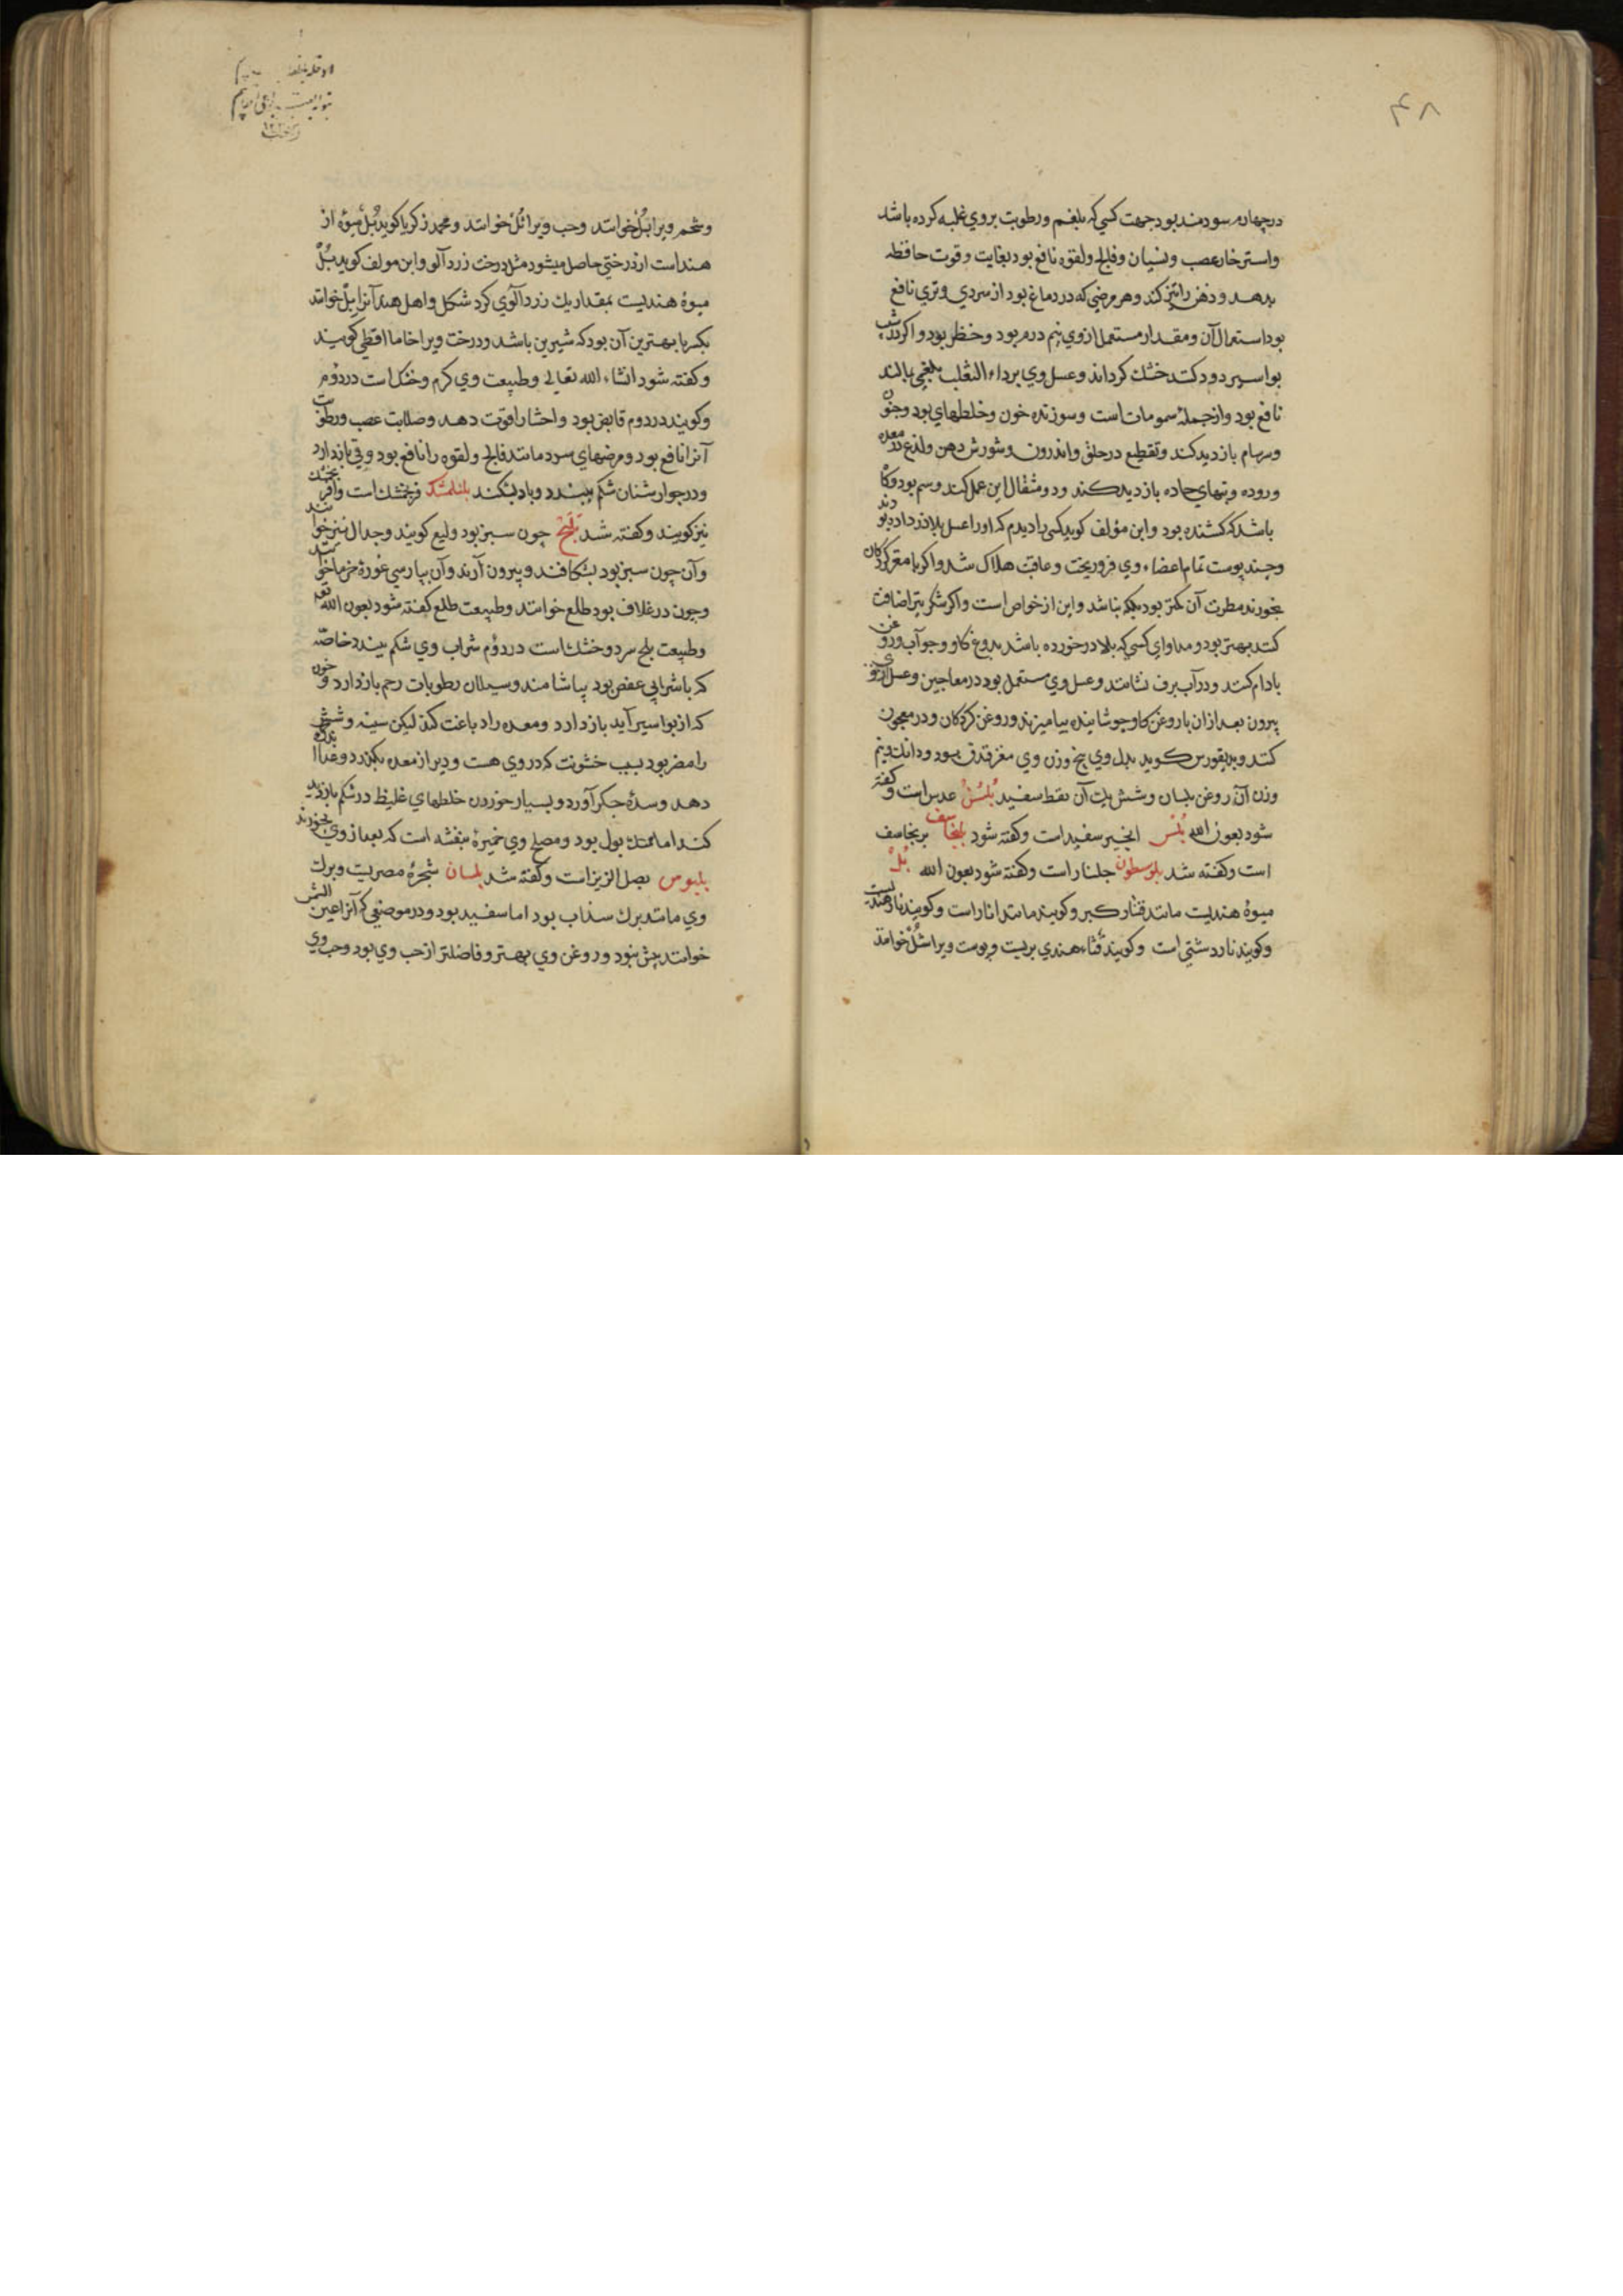 ۴۸
در چهارم سودمند بود جهت کسی که بلغم و رطوبت بروی غلبه کرده باشد
واسترخاء عصب ونسیان وفالج ولقوه نافع بود بغایت وقوت حافظه
بدهد وذهن را تیز کند وهر مرضی که در دماغ بود از سردی وتری نافع
بود استعمال آن ومقدار مستعمل از وی نیم درم بود وخطر بود واکر در شیب
بواسیر دود کنند خشک کرداند وعسل وی بر داء الثعلب بلغمی بمالند
نافع بود واز جمله سمومات است وسوزنده خون وخلطهای بود وجنون
وسرسام بازدید کند وتقطیع در حلق واندرون وشورش دهن ولذع در معده
وروده وتبهای حاده بازدید کند ودو مثقال این عمل کند وسم بود وکاه
باشد که کشنده بود وابن مؤلف کوید کسی را دیدم که او را عسل بلادر داده بودند
وچند پوست تمام اعضاء وی فرو ریخت وعاقبت هلاک شد واکر با مغز کردکان
بخورند مضرت آن کمتر بود بلکه نباشد واین از خواص است واکر شکر نیز اضافت
کنند بهتر بود ومداوای کسی که بلادر خورده باشد بدوغ کاو وجو آب وروغن
بادام کنند ودر آب برف نشانند وعسل وی مستعمل بود در معاجین وعسل از وی
بیرون بعد از ان با روغن کاو جوشانیده بیامیزند وروغن کردکان ودر معجون
کنند ودیسقوریدس کوید بدل وی پنج وزن وی مغز فندق بود ودانک ونیم
وزن آن روغن بلسان وشش یک آن نفط سفید بُلسُن عدس است وکفته
شود بعون الله بُلَس انجیر سفید است وکفته شود بلنجاسف برنجاسف
است وکفته شد بلوسطون جلنار است وکفته شود بعون الله بُلْ
میوهٔ هندیست مانند قثار کبر وکویند مانند انار است وکویند نار هندیست
وکویند نار دشتی است وکویند قثاء هندی بریست وپوست ویرا شُل خوانند
وشحم ویرا بُل خوانند وحب ویرا ثُل خوانند ومحمد زکریا کوید بُل میوهٔ از
هند است از درختی حاصل میشود مثل درخت زردآلو وابن مولف کوید بُلْ
میوهٔ هندیست بمقدار یک زردآلوی کرد شکل واهل هند آنرا بل خوانند
بکسر با بهترین آن بود که شیرین باشد ودرخت ویرا خاما اقطی کویند
وکفته شود انشاء الله تعالی وطبیعت وی کرم وخشک است در دوم
وکویند در دوم قابض بود واحشا را قوت دهد وصلابت عصب ورطوبت
آنرا نافع بود ومرضهای سرد مانند فالج ولقوه را نافع بود وقی بازدارد
ودر جوارشنان شکم ببندد وباد بشکند بلنلمشک فرنجمشک است وافرنجمشک
نیز کویند وکفته شد بَلَح چون سبز بود ولیع کویند وجدال نیز خوانند
وآن چون سبز بود بشکافند وبیرون آرند وآن بپارسی غورهٔ خرما خوانند
وچون در غلاف بود طلع خوانند وطبیعت طلع کفته شود بعون الله تعه
وطبیعت بلح سرد وخشک است در دوُم شراب وی شکم ببندد خاصّه
که با شرابی عفص بود بیاشامند وسیلان رطوبات رحم بازدارد وخون
که از بواسیر آید بازدارد ومعده را دباغت کند لیکن سینه وشش
را مضر بود بسبب خشونت که در وی هست ودیر از معده بکذرد وغذا اندک
دهد وسدهٔ جکر آورد وبسیار خوردن خلطهای غلیظ در شکم بازدید
کند اما ممسک بول بود ومصلح وی خمیرهٔ بنفشه است که بعد از وی بخورند
بلبوس بصل الزیز است وکفته شد بلسان شجرهٔ مصریست وبرک
وی مانند برک سذاب بود اما سفید بود ودر موضعی که آنرا عین الشمس
خوانند بیش نبود وروغن وی بهتر وفاضلتر از حب وی بود وحب وی